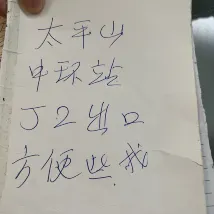 太平山
中环站
J2出口
方便些我